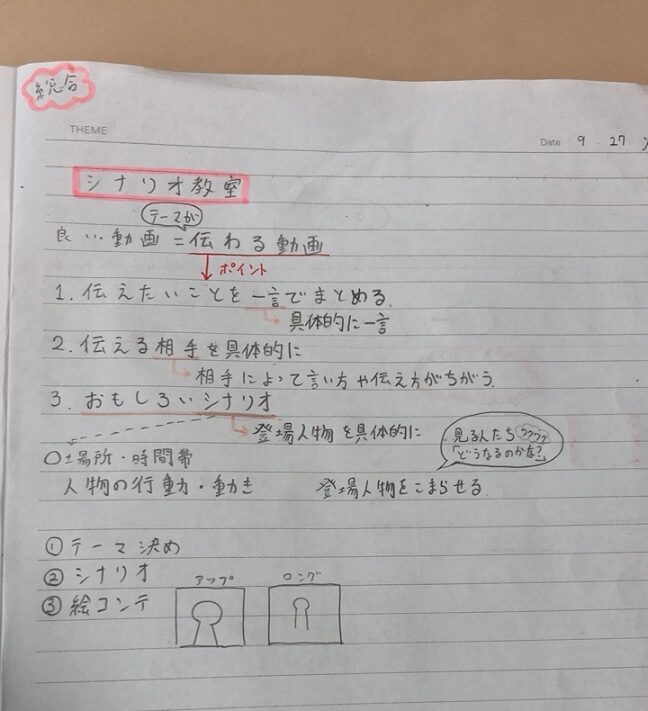 総合
THEME
Date 9. 27.
シナリオ教室
テーマが
良い動画=伝わる動画
ポイント
1. 伝えたいことを一言でまとめる.
具体的に一言
2. 伝える相手を具体的に
相手によって言い方や伝え方がちがう.
3. おもしろいシナリオ
登場人物を具体的に
見る人たち ワクワク
「どうなるのかな?」
場所・時間帯
人物の行動・動き 登場人物をこまらせる.
① テーマ決め
② シナリオ
③ 絵コンテ
アップ ロング